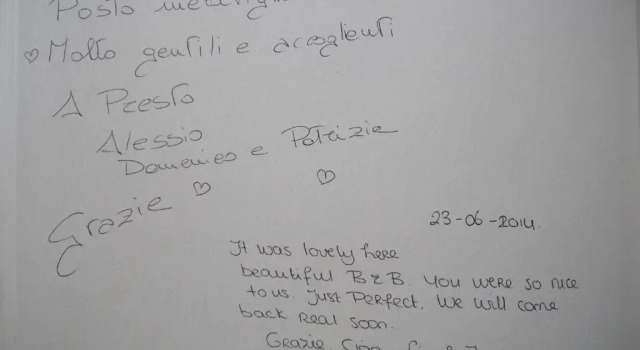 Posto
♡ Molto gentili e accoglienti
A Presto
Alessio
Domenico e Patrizia
Grazie ♡ ♡
23-06-2014.
It was lovely here
beautiful B&B. You were so nice
to us. Just Perfect. We will come
back real soon.
Grazie. Ciao,